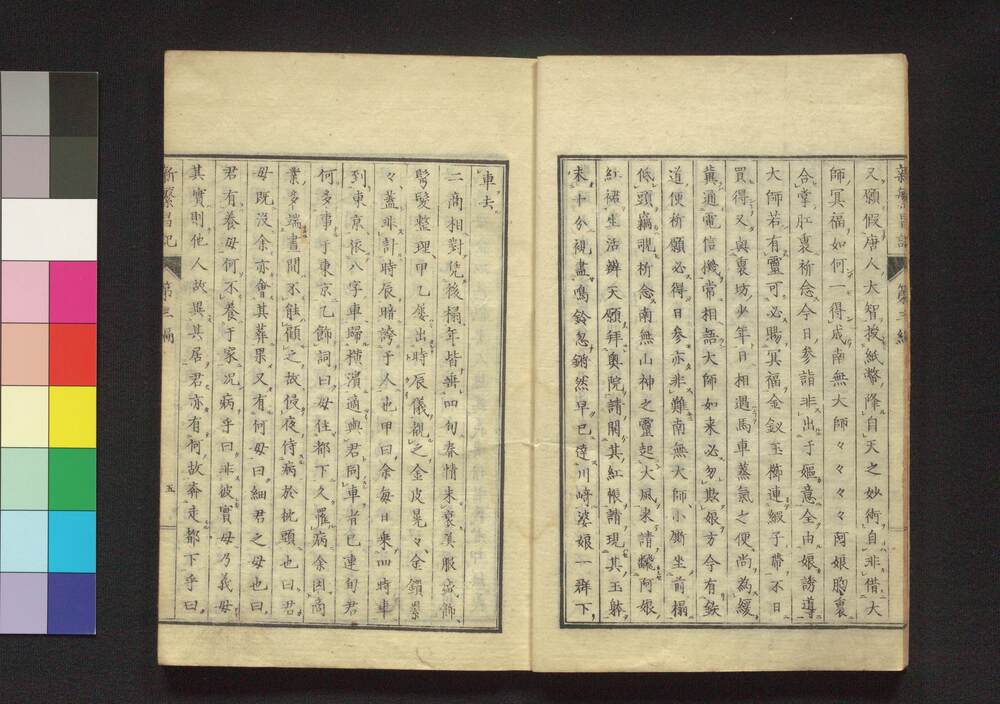 又願假唐人大智披紙幣降自天之妙術自非借大
師冥福如何一得成南無大師々々々々阿娘胸裏
合掌肛裏祈念今日參詣非出于嫗意全由娘誘導
大師若有靈可必賜冥福金釵玉櫛連綴子帶不日
買得又與裏坊少年日相遇馬車蒸氣之便尚為緩
冀通電信機常相語大師如来必勿欺娘方今有鉄
道便祈願必得日參亦非難南無大師小廝坐前榻
低頭竊視祈念南無山神之靈起大風来請飜阿娘
紅裙生活辨天願拜奥院請開其紅帳請現其玉躰
未十分視盡鳴鈴忽鏘然早已達川崎婆娘一群下
車去
二商相對凭榻年皆垂四旬春情未衰美服盛飾
髩髮整理甲乙屡出時辰儀覩之金皮晃々金鎖纍
々蓋非計時辰暗誇于人也甲曰余毎日乘四時車
到東京依八字車歸橫濱適與君同車者已連旬君
何多事于東京乙飾詞曰母在都下久罹病余因商
業多端晝間不能顧之故侵夜侍病於枕頭也曰君
母既沒余亦會其葬果又有何母曰細君之母也曰
君有養母何不養于家況病乎曰非彼實母乃義母
其實則他人故異其居君亦有何故奔走都下乎曰
新繁昌記
第三編
五